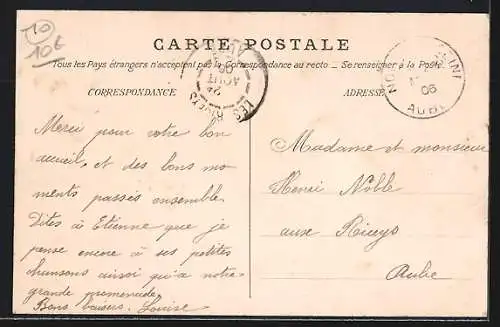 10
10€
CARTE POSTALE
Tous les Pays étrangers n'acceptent pas la Correspondance au recto — Se renseigner à la Poste
CORRESPONDANCE
ADRESSE
LES RICEYS
24
AOUT
06
AUBE
06
AUBE
Merci pour votre bon
accueil, et des bons mo
ments passés ensemble.
Dites à Etienne que je
pense encore à ses petites
chansons ainsi qu'à notre
grande promenade.
Bons baisers. Louise
Madame et monsieur
Henri Noble
aux Riceys
Aube